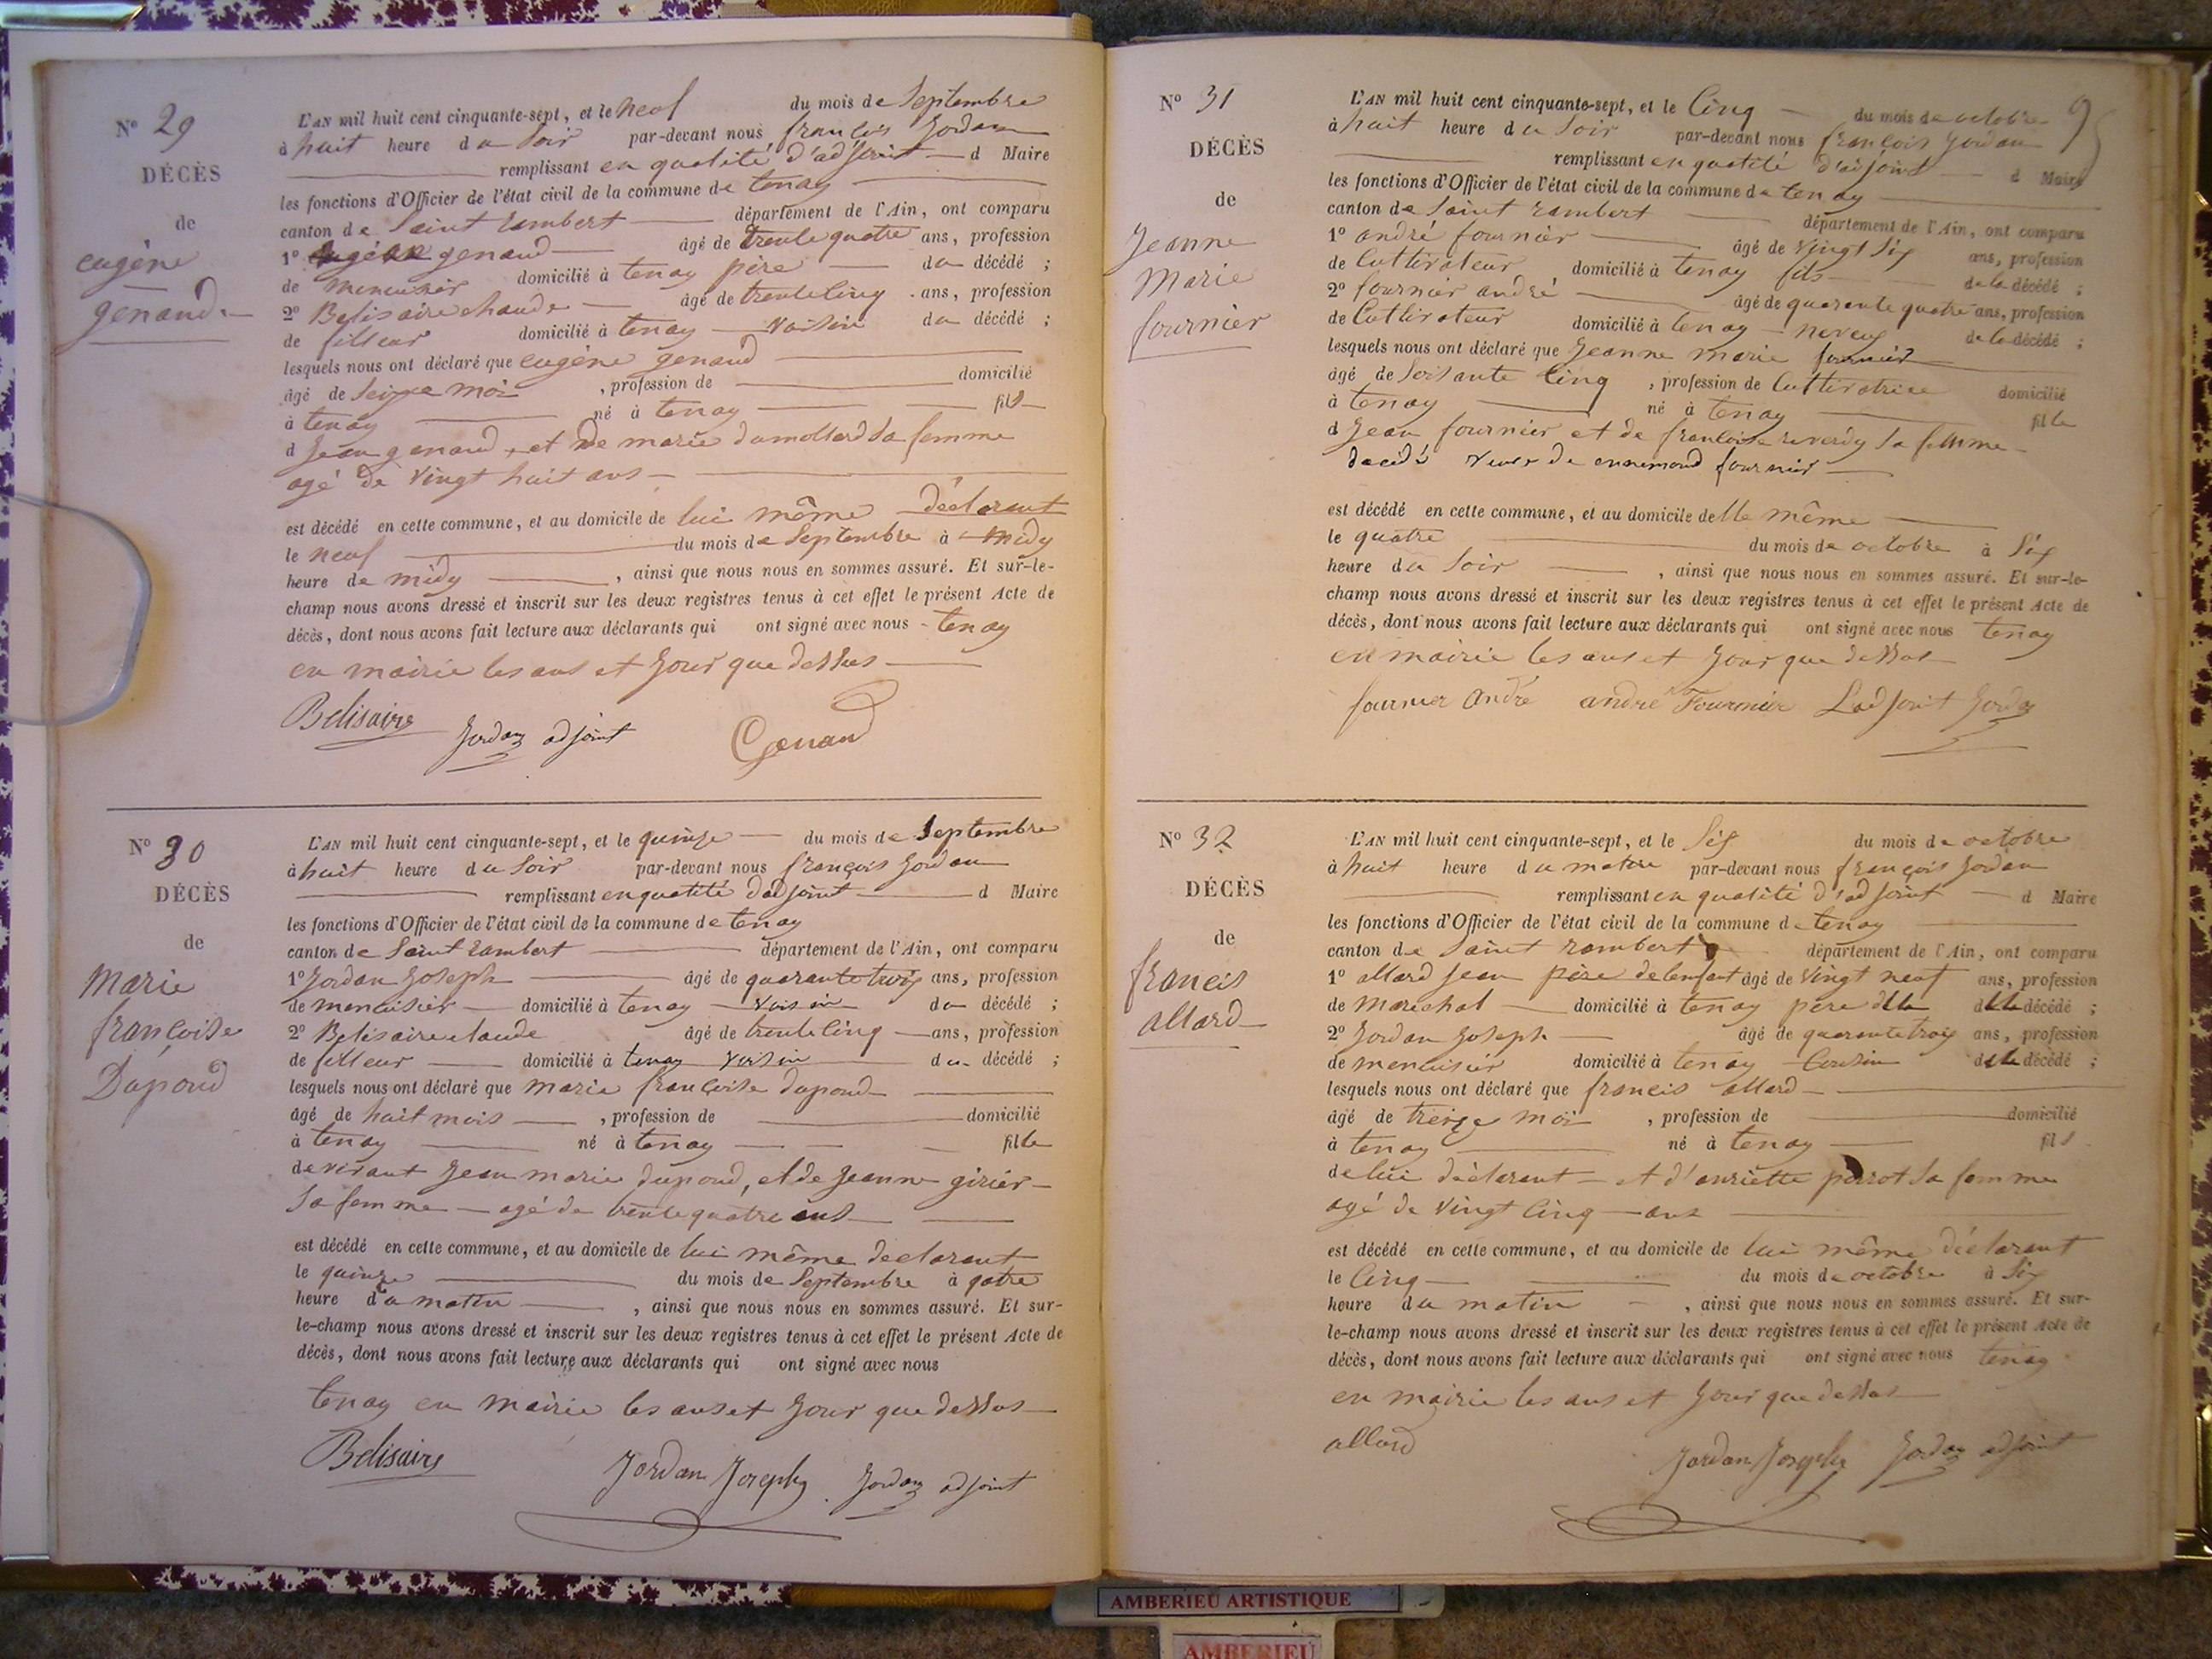 Nº 29
DÉCÈS
de
eugène
genand
L'AN mil huit cent cinquante-sept, et le neuf du mois de Septembre
à huit heure du Soir par-devant nous françois Jordan
remplissant en qualité d'adjoint d Maire
les fonctions d'Officier de l'état civil de la commune de tenay
canton de Saint rambert département de l'Ain, ont comparu
1º genand âgé de trente quatre ans, profession
de menusier domicilié à tenay père du décédé ;
2º Belisaire claude âgé de trente cinq ans, profession
de filleur domicilié à tenay Voisin du décédé ;
lesquels nous ont déclaré que eugène genand
âgé de Seize moi , profession de domicilié
à tenay né à tenay fils
d Jean genand, et de marie dumollard Sa femme
agé de Vingt huit ans
est décédé en cette commune, et au domicile de lui même déclarant
le neuf du mois de Septembre à midy
heure de midy , ainsi que nous nous en sommes assuré. Et sur-le-
champ nous avons dressé et inscrit sur les deux registres tenus à cet effet le présent Acte de
décès, dont nous avons fait lecture aux déclarants qui ont signé avec nous tenay
en mairie les ans et Jour que dessus
Belisaire Jordan adjoint Genand
Nº 30
DÉCÈS
de
Marie
françoise
Dupond
L'AN mil huit cent cinquante-sept, et le quinze du mois de Septembre
à huit heure du Soir par-devant nous françois Jordan
remplissant en qualité d'adjoint d Maire
les fonctions d'Officier de l'état civil de la commune de tenay
canton de Saint rambert département de l'Ain, ont comparu
1º Jordan Joseph âgé de quarante trois ans, profession
de menuisier domicilié à tenay Voisin du décédé ;
2º Belisaire claude âgé de trente cinq ans, profession
de filleur domicilié à tenay voisin du décédé ;
lesquels nous ont déclaré que marie françoise dupond
âgé de huit mois , profession de domicilié
à tenay né à tenay fille
de vivant Jean marie dupond, et de Jeanne girier
Sa femme agé de trente quatre ans
est décédé en cette commune, et au domicile de lui même declarant
le quinze du mois de Septembre à qatre
heure du matin , ainsi que nous nous en sommes assuré. Et sur-
le-champ nous avons dressé et inscrit sur les deux registres tenus à cet effet le présent Acte de
décès, dont nous avons fait lecture aux déclarants qui ont signé avec nous
tenay en mairie les ans et Jour que dessus
Belisaire Jordan Joseph Jordan adjoint
Nº 31
DÉCÈS
de
Jeanne
Marie
fournier
L'AN mil huit cent cinquante-sept, et le Cinq du mois de octobre
à huit heure du Soir par-devant nous françois Jordan
remplissant en qualité d'adjoint d Maire
les fonctions d'Officier de l'état civil de la commune de tenay
canton de Saint rambert département de l'Ain, ont comparu
1º andré fournier âgé de Vingt Six ans, profession
de Cultivateur domicilié à tenay fils de la décédé ;
2º fournier andré âgé de quarante quatre ans, profession
de Cultivateur domicilié à tenay neveu de la décédé ;
lesquels nous ont déclaré que Jeanne marie fournier
âgé de Soisante Cinq , profession de Cultivatrice domicilié
à tenay né à tenay fille
d Jean fournier et de françoise reverdy Sa femme
décédé veuve de ennemond fournier
est décédé en cette commune, et au domicile delle même
le quatre du mois de octobre à Six
heure du Soir , ainsi que nous nous en sommes assuré. Et sur-le-
champ nous avons dressé et inscrit sur les deux registres tenus à cet effet le présent Acte de
décès, dont nous avons fait lecture aux déclarants qui ont signé avec nous tenay
en mairie les ans et Jour que dessus
fournier andré andré Fournier L'adjoint Jordan
Nº 32
DÉCÈS
de
francis
allard
L'AN mil huit cent cinquante-sept, et le Six du mois de octobre
à huit heure du matin par-devant nous françois Jordan
remplissant en qualité d'adjoint d Maire
les fonctions d'Officier de l'état civil de la commune de tenay
canton de Saint rambert département de l'Ain, ont comparu
1º allard Jean père de lenfant âgé de Vingt neuf ans, profession
de Marechal domicilié à tenay père décédé ;
2º Jordan Joseph âgé de quarante trois ans, profession
de menuisier domicilié à tenay Cousin décédé ;
lesquels nous ont déclaré que francis allard
âgé de treize moi , profession de domicilié
à tenay né à tenay fils
de lui déclarant et d'anriette perrot Sa femme
agé de Vingt Cinq ans
est décédé en cette commune, et au domicile de lui même déclarant
le Cinq du mois de octobre à Six
heure du matin , ainsi que nous nous en sommes assuré. Et sur-
le-champ nous avons dressé et inscrit sur les deux registres tenus à cet effet le présent Acte de
décès, dont nous avons fait lecture aux déclarants qui ont signé avec nous tenay
en mairie les ans et Jour que dessus
allard Jordan Joseph Jordan adjoint
AMBERIEU ARTISTIQUE
AMBERIEU